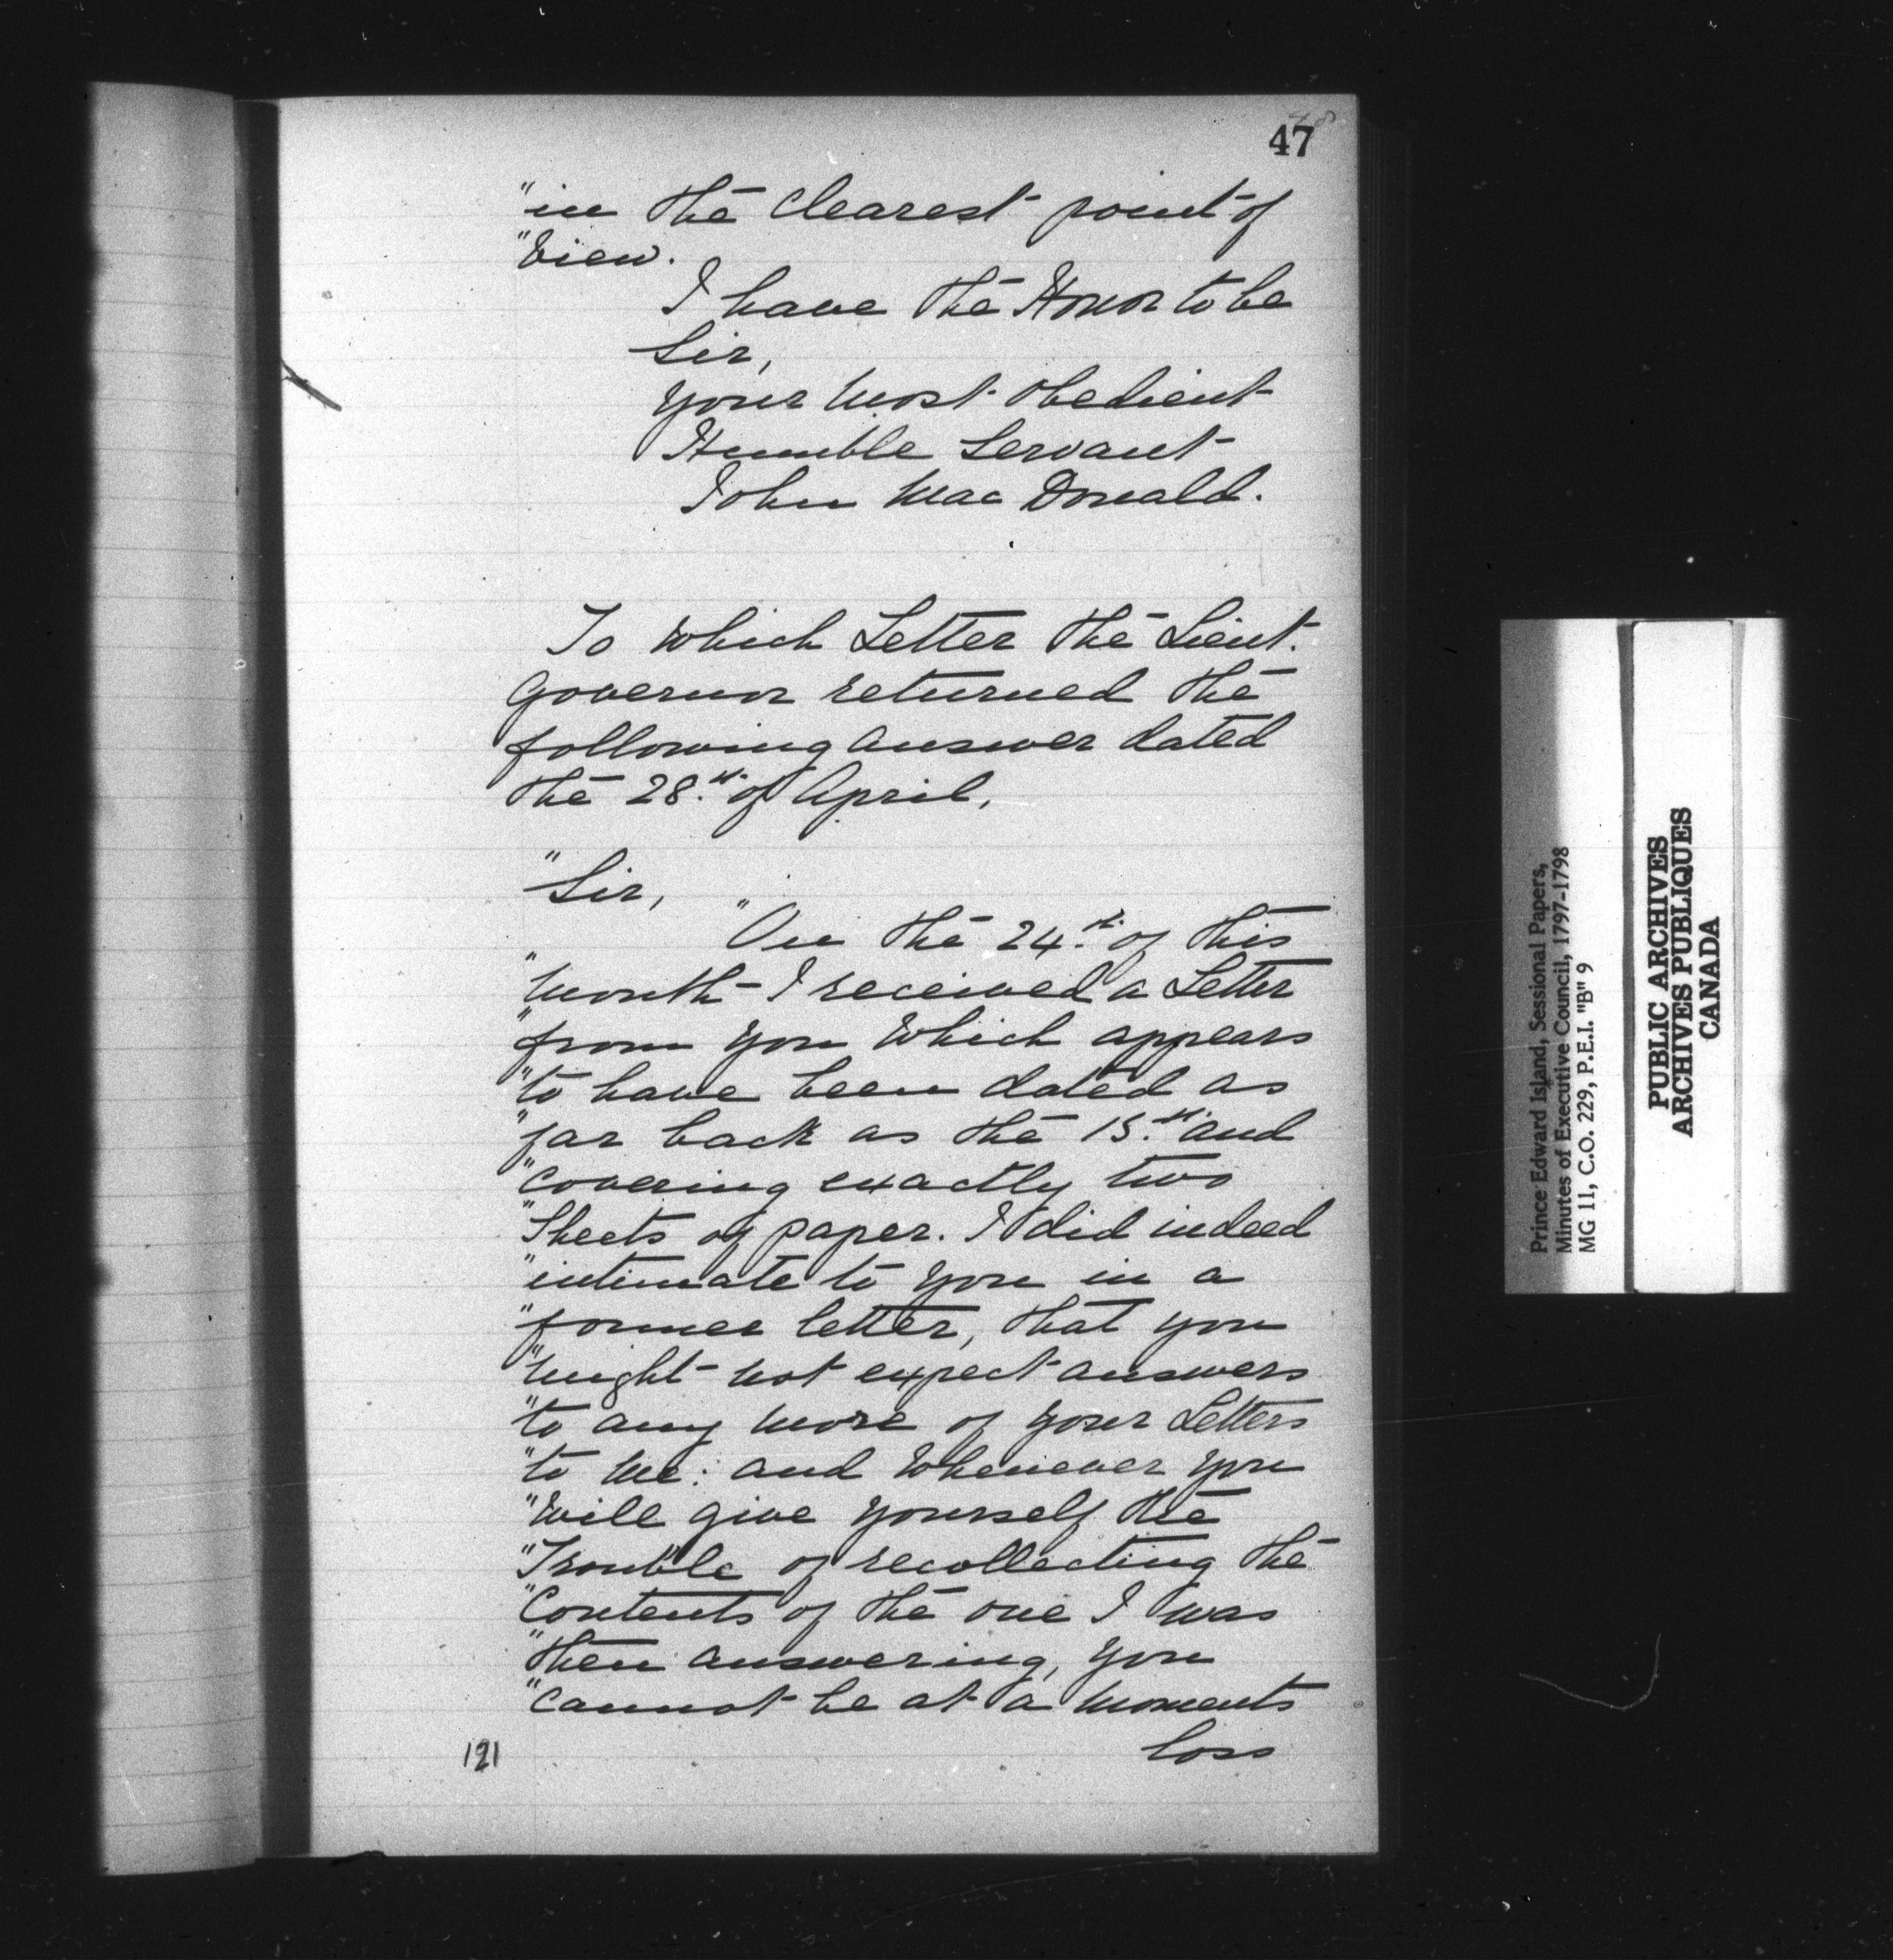 47
"in the Clearest point of
"View.
I have the Honor to be
Sir,
Your Most Obedient
Humble Servant
John Mac Donald.
To Which Letter the Lieut.
Governor returned the
following answer dated
the 28.th of April,
"Sir,
"On the 24.th of this
"Month I received a Letter
"from you Which appears
"to have been dated as
"far back as the 15.th and
"Covering exactly two
"Sheets of paper. I did indeed
"intimate to you in a
"former letter, that you
"might not expect answers
"to any more of your Letters
"to Me: and Whenever you
"Will give yourself the
"Trouble of recollecting the
"Contents of the one I was
"then answering, you
"Cannot be at a Moments
loss
121
Prince Edward Island, Sessional Papers,
Minutes of Executive Council, 1797-1798
MG 11, C.O. 229, P.E.I. "B" 9
PUBLIC ARCHIVES
ARCHIVES PUBLIQUES
CANADA